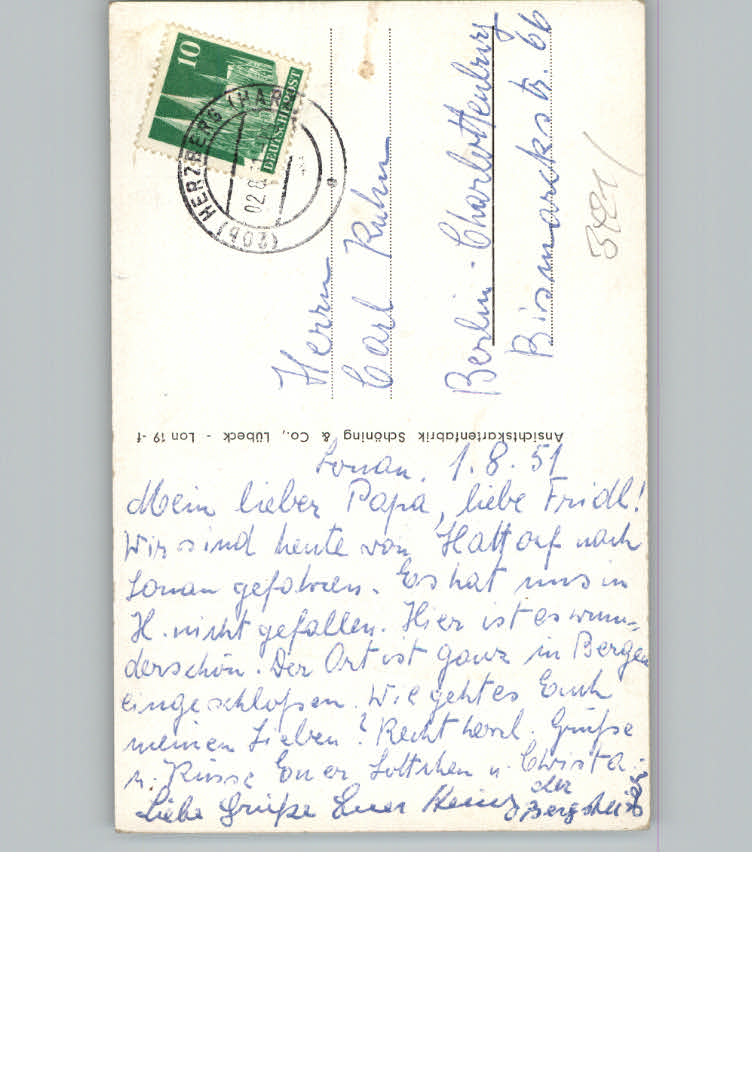 10
DEUTSCHE POST
(20b) HERZBERG (HARZ)
02.8.
a
Herrn
Carl Kuhn
Berlin-Charlottenburg
Bismarckstr. 66
Ansichtskartenfabrik Schöning & Co., Lübeck - Lon 19 -f
Lonau, 1.8.51
Mein lieber Papa, liebe Fridl!
Wir sind heute von Hattorf nach
Lonau gefahren. Es hat uns in
H. nicht gefallen. Hier ist es wun-
derschön. Der Ort ist ganz in Bergen
eingeschlossen. Wie geht es Euch
meinen Lieben? Recht herzl. Grüße
u. Küsse Euer Lottchen u. Christa.
Liebe Grüße Euer Heinz der